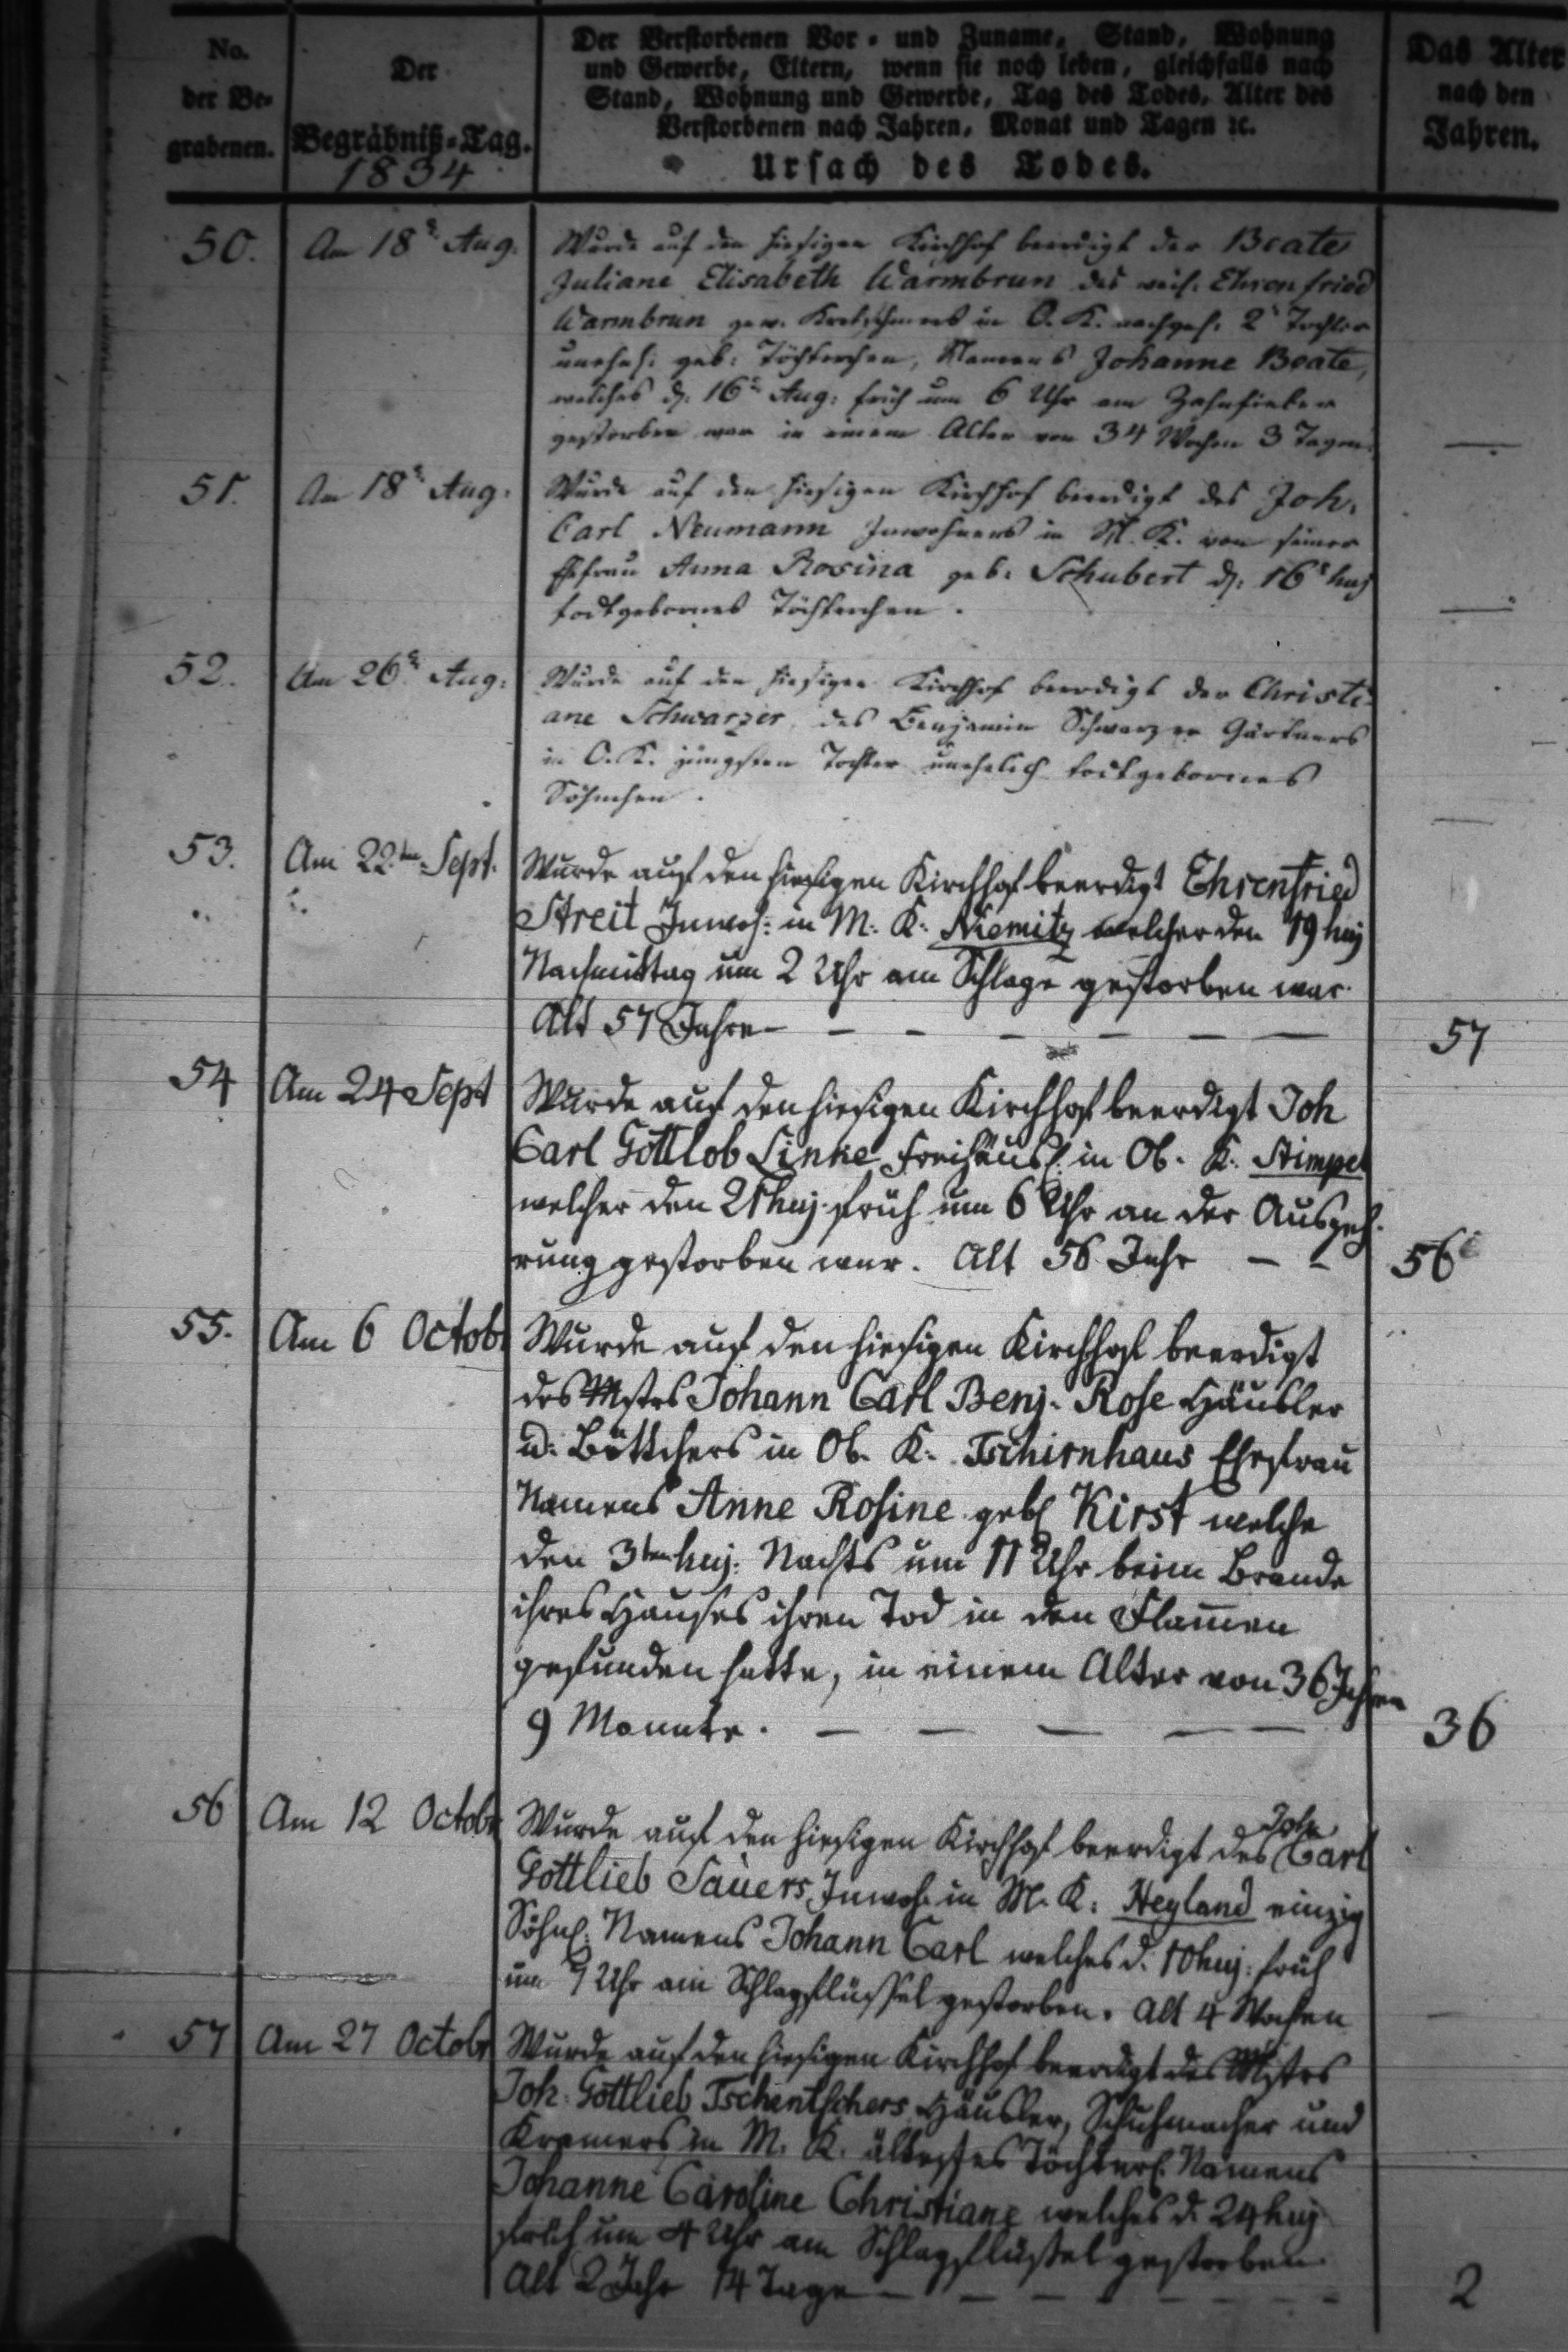 No.
der Be-
grabenen.
Der
Begräbniß-Tag.
1834
Der Verstorbenen Vor- und Zuname, Stand, Wohnung
und Gewerbe, Eltern, wenn sie noch leben, gleichfalls nach
Stand, Wohnung und Gewerbe, Tag des Todes, Alter des
Verstorbenen nach Jahren, Monat und Tagen ꝛc.
Ursach des Todes.
Das Alter
nach den
Jahren.
50. Am 18t Aug. Wurde auf den hiesigen Kirchhof beerdigt der Beate
Juliane Elisabeth Warmbrun des weil. Ehrenfried
Warmbrun gew. Kretschmers in O. K. nachgel. 2t Tochter
unehel: geb: Töchterchen, Namens Johanne Beate,
welches d. 16t Aug: früh um 6 Uhr am Zahnfieber
gestorben war in einem Alter von 34 Wochen 3 Tagen. —
51. Am 18t Aug: Wurde auf den hiesigen Kirchhof beerdigt des Joh.
Carl Neumann Inwohners in M. K. von seiner
Ehefrau Anna Rosina geb: Schubert d. 16t huj
todtgebornes Töchterchen. —
52. Am 26t Aug: Wurde auf den hiesigen Kirchhof beerdigt der Christi-
ane Schwarzer, des Benjamin Schwarzer Gärtners
in O. K. jüngsten Tochter unehelich todtgebornes
Söhnchen. —
53. Am 22ten Sept. Wurde auf den hiesigen Kirchhof beerdigt Ehrenfried
Streit Inwoh: in M. K. Niemitz welcher den 19 huj
Nachmittag um 2 Uhr am Schlage gestorben war.
Alt 57 Jahre — — — — — — 57
54 Am 24 Sept Wurde auf den hiesigen Kirchhof beerdigt Joh
Carl Gottlob Linke Freihäusl. in Ob. K. Stimpel
welcher den 21 huj. früh um 6 Uhr an der Auszeh-
rung gestorben war. Alt 56 Jahr — — 56
55. Am 6 Octobr Wurde auf den hiesigen Kirchhof beerdigt
des Mstrs Johann Carl Benj. Rose Häusler
u. Böttchers in Ob. K. Tschirnhaus Ehefrau
Namens Anne Rosine geb. Kirst welche
den 3ten huj. Nachts um 11 Uhr beim Brande
ihres Hauses ihren Tod in den Flam̄en
gefunden hatte, in einem Alter von 36 Jahren
9 Monate. — — — — — 36
56 Am 12 Octobr Wurde auf den hiesigen Kirchhof beerdigt des Joh. Carl
Gottlieb Sauers Inwoh. in M. K. Heyland einzig
Söhnl. Namens Johann Carl welches d. 10 huj. früh
um 7 Uhr am Schlagflüssel gestorben. Alt 4 Wochen —
57 Am 27 Octobr Wurde auf den hiesigen Kirchhof beerdigt des Mstrs
Joh. Gottlieb Tschentschers Häusler, Schuhmacher und
Kramers in M. K. ältestes Töchterl. Namens
Johanne Caroline Christiane welches d. 24 huj
früh um 4 Uhr am Schlagflüssel gestorben.
Alt 2 Jahr 14 Tage — — — — 2